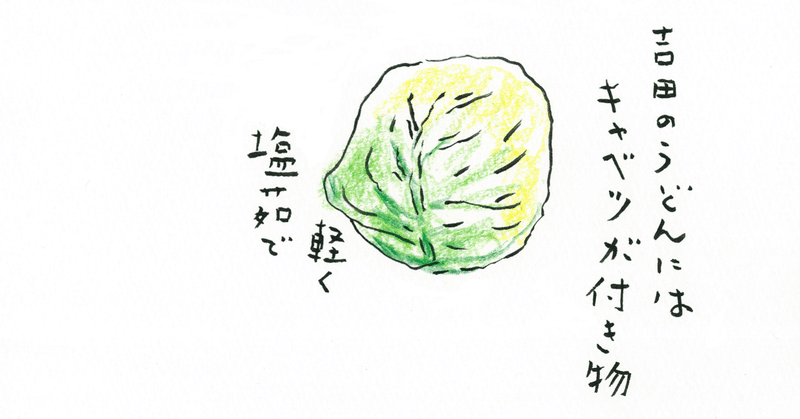 吉田のうどんには
キャベツが付き物
軽く
塩茹で